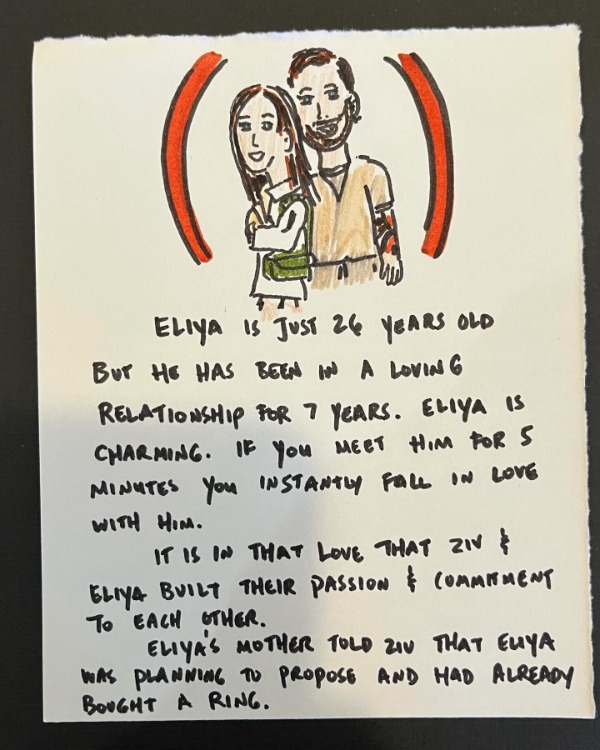 ELIYA IS JUST 26 YEARS OLD
BUT HE HAS BEEN IN A LOVING
RELATIONSHIP FOR 7 YEARS. ELIYA IS
CHARMING. IF YOU MEET HIM FOR 5
MINUTES YOU INSTANTLY FALL IN LOVE
WITH HIM.
IT IS IN THAT LOVE THAT ZIV &
ELIYA BUILT THEIR PASSION & COMMITMENT
TO EACH OTHER.
ELIYA'S MOTHER TOLD ZIV THAT ELIYA
WAS PLANNING TO PROPOSE AND HAD ALREADY
BOUGHT A RING.